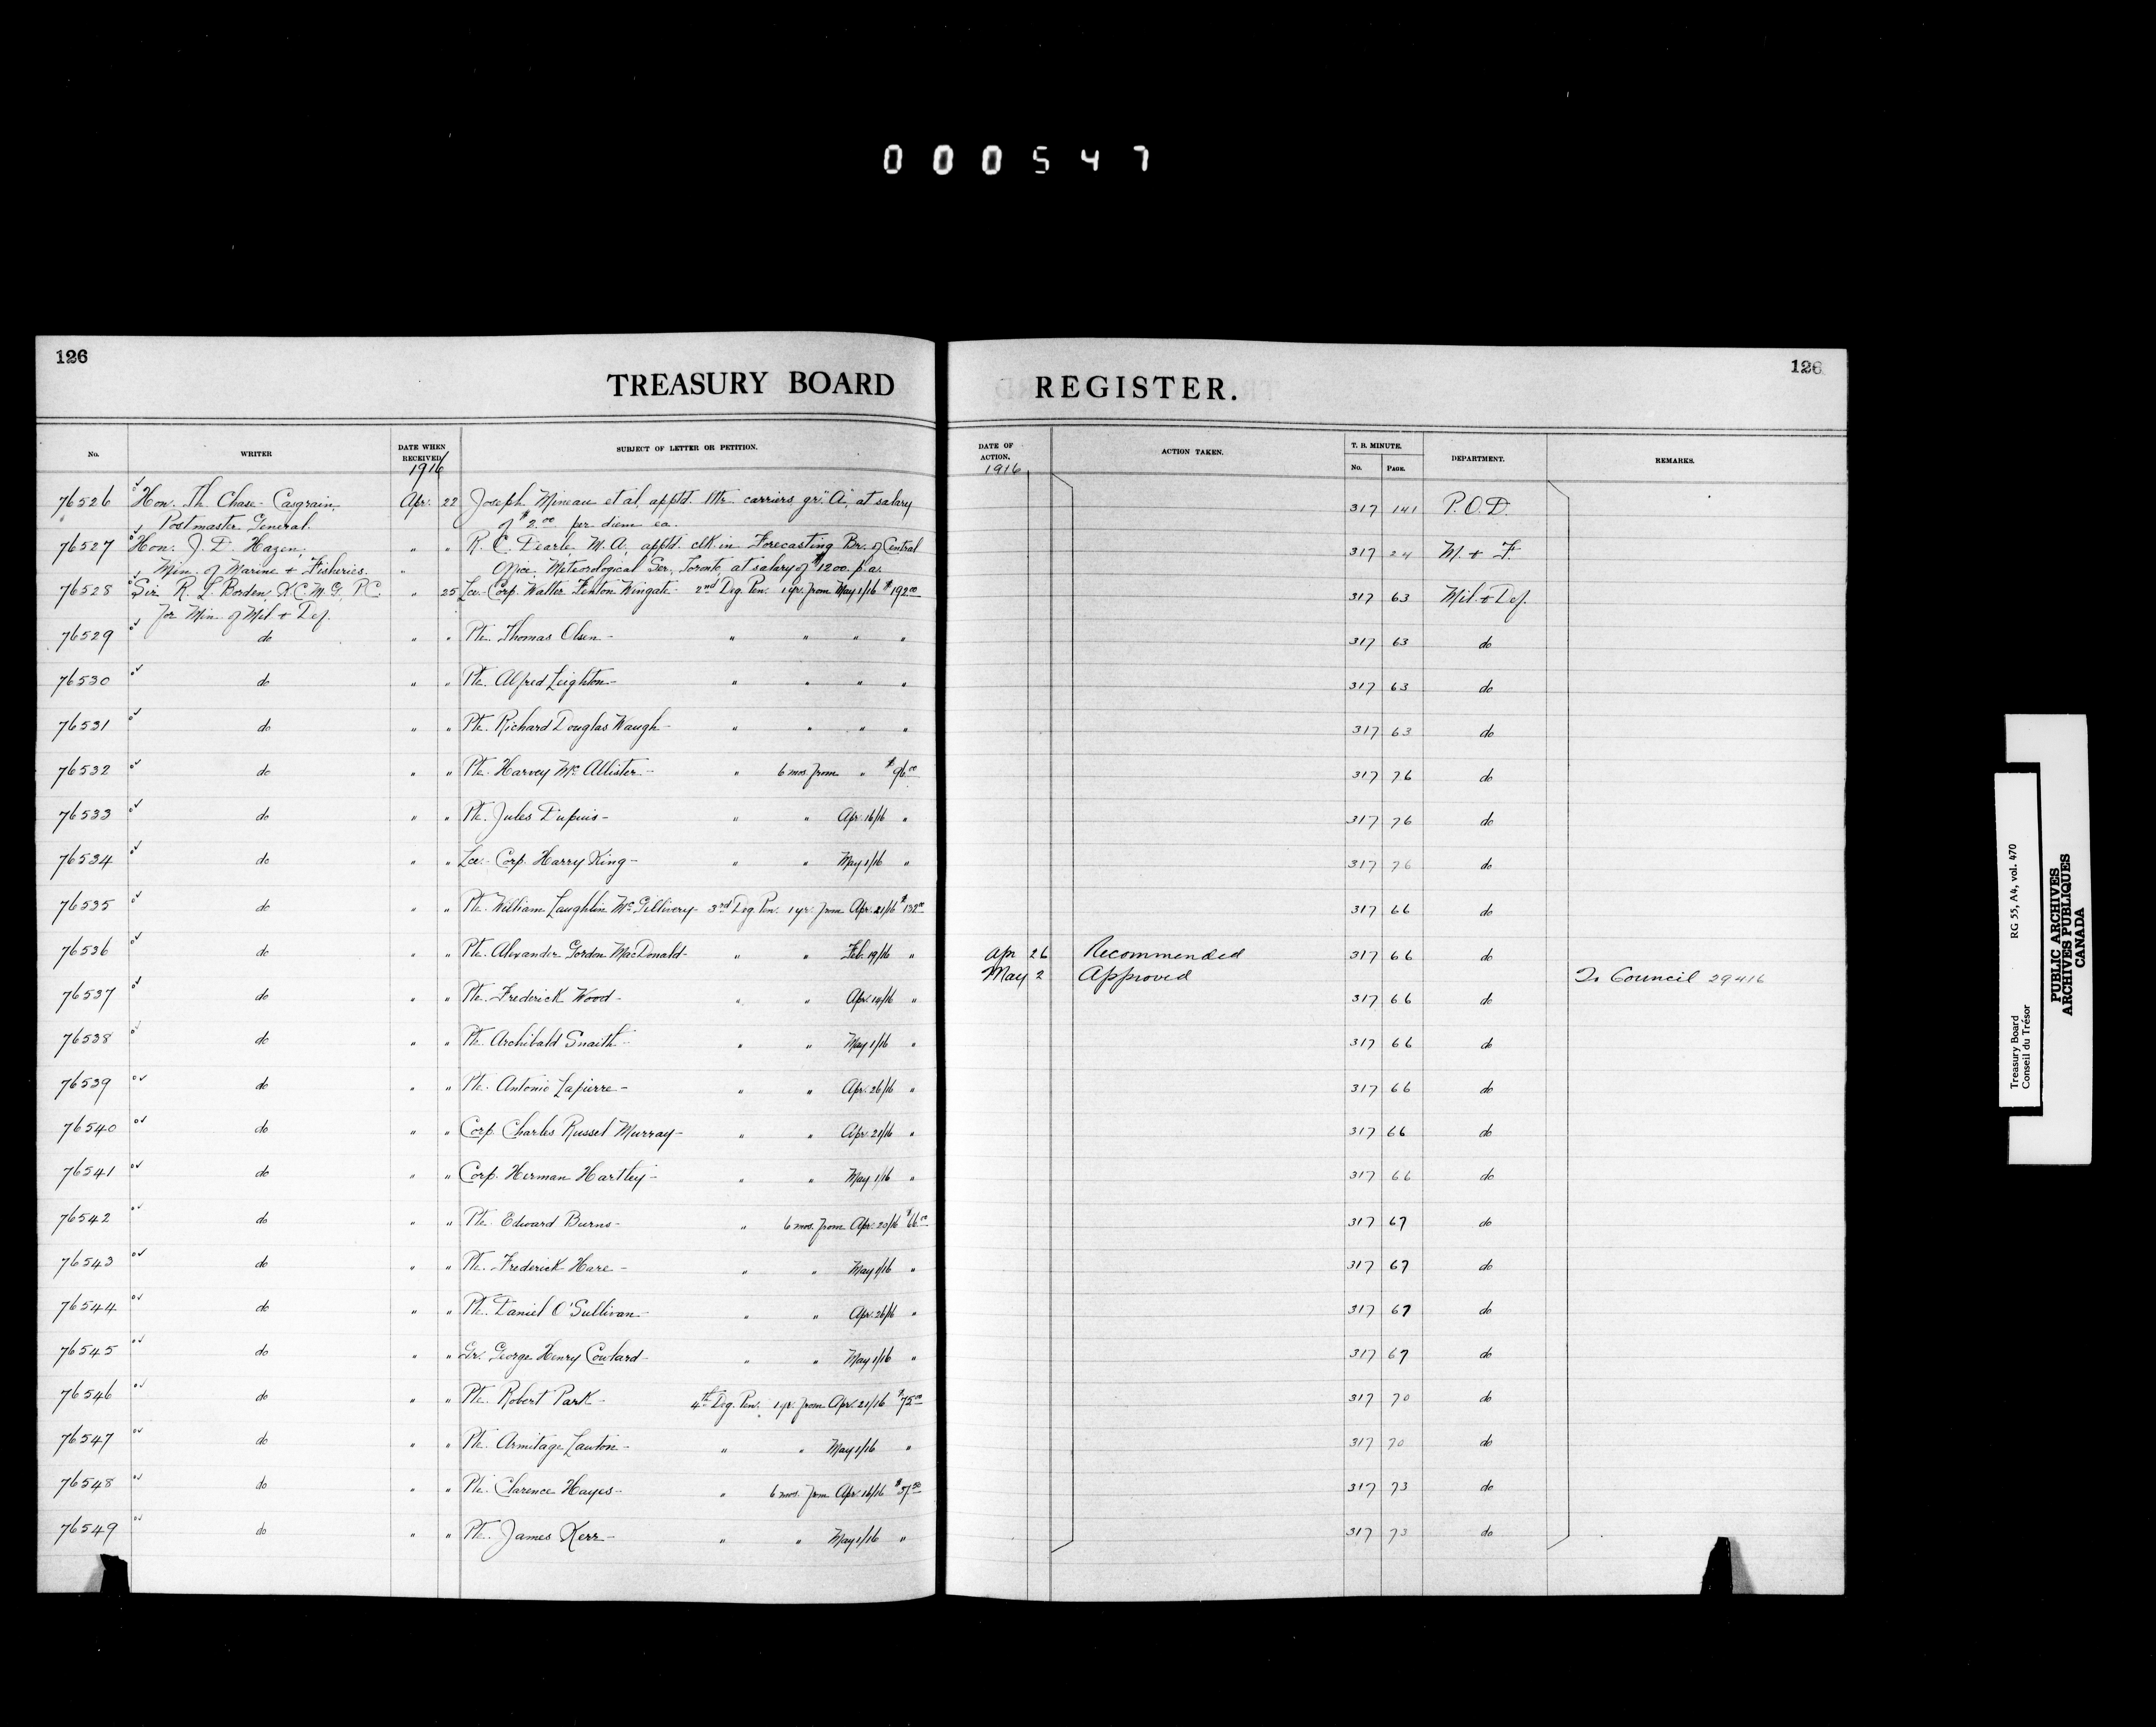 000547
126
TREASURY BOARD REGISTER.
126
No. WRITER DATE WHEN RECEIVED SUBJECT OF LETTER OR PETITION. DATE OF ACTION. ACTION TAKEN. T. B. MINUTE. No. PAGE. DEPARTMENT. REMARKS.
1916 1916
76526 Hon. Th. Chase-Casgrain, Apr. 22 Joseph Mineau et al, apptd. lttr. carriers gr. "A", at salary 317 141 P.O.D.
Postmaster General. of $2.00 per diem ea.
76527 Hon. J. D. Hazen, " " R. C. Dearle, M.A., apptd. clk. in Forecasting Br. of Central 317 24 M. + F.
Min. of Marine + Fisheries. " Office, Meteorological Ser., Toronto, at salary of $1200. p.a.
76528 Sir R. L. Borden, K.C.M.G., P.C. " 25 Lce-Corp. Walter Fenton Wingate- 2nd Deg. Pen. 1 yr. from May 1/16 $192.00 317 63 Mil. + Def.
for Min. of Mil. + Def.
76529 do " " Pte. Thomas Olsen- " " " " 317 63 do
76530 do " " Pte. Alfred Leighton- " " " " 317 63 do
76531 do " " Pte. Richard Douglas Waugh- " " " " 317 63 do
76532 do " " Pte. Harvey McAllister- " 6 mos. from " $96.00 317 76 do
76533 do " " Pte. Jules Dupuis- " " Apr. 16/16 " 317 76 do
76534 do " " Lce-Corp. Harry King- " " May 1/16 " 317 76 do
76535 do " " Pte. William Laughlin McGillivery- 3rd Deg. Pen. 1 yr. from Apr. 21/16 $132.00 317 66 do
76536 do " " Pte. Alexander Gordon MacDonald- " " Feb. 19/16 " Apr 26 Recommended 317 66 do
May 2 Approved To Council 29416
76537 do " " Pte. Frederick Wood- " " Apr. 14/16 " 317 66 do
76538 do " " Pte. Archibald Snaith- " " May 1/16 " 317 66 do
76539 do " " Pte. Antonio Lapierre- " " Apr. 26/16 " 317 66 do
76540 do " " Corp. Charles Russel Murray- " " Apr. 21/16 " 317 66 do
76541 do " " Corp. Herman Hartley- " " May 1/16 " 317 66 do
76542 do " " Pte. Edward Burns- " 6 mos. from Apr. 20/16 $66.00 317 67 do
76543 do " " Pte. Frederick Hare- " " May 1/16 " 317 67 do
76544 do " " Pte. Daniel O'Sullivan- " " Apr. 26/16 " 317 67 do
76545 do " " Gr. George Henry Coulard- " " May 1/16 " 317 67 do
76546 do " " Pte. Robert Park- 4th Deg. Pen. 1 yr. from Apr. 21/16 $75.00 317 70 do
76547 do " " Pte. Armitage Lawton- " " May 1/16 " 317 70 do
76548 do " " Pte. Clarence Hayes- " 6 mos. from Apr. 16/16 $37.50 317 73 do
76549 do " " Pte. James Kerr- " " May 1/16 " 317 73 do
Treasury Board RG 55, A4, vol. 470
Conseil du Trésor
PUBLIC ARCHIVES
ARCHIVES PUBLIQUES
CANADA